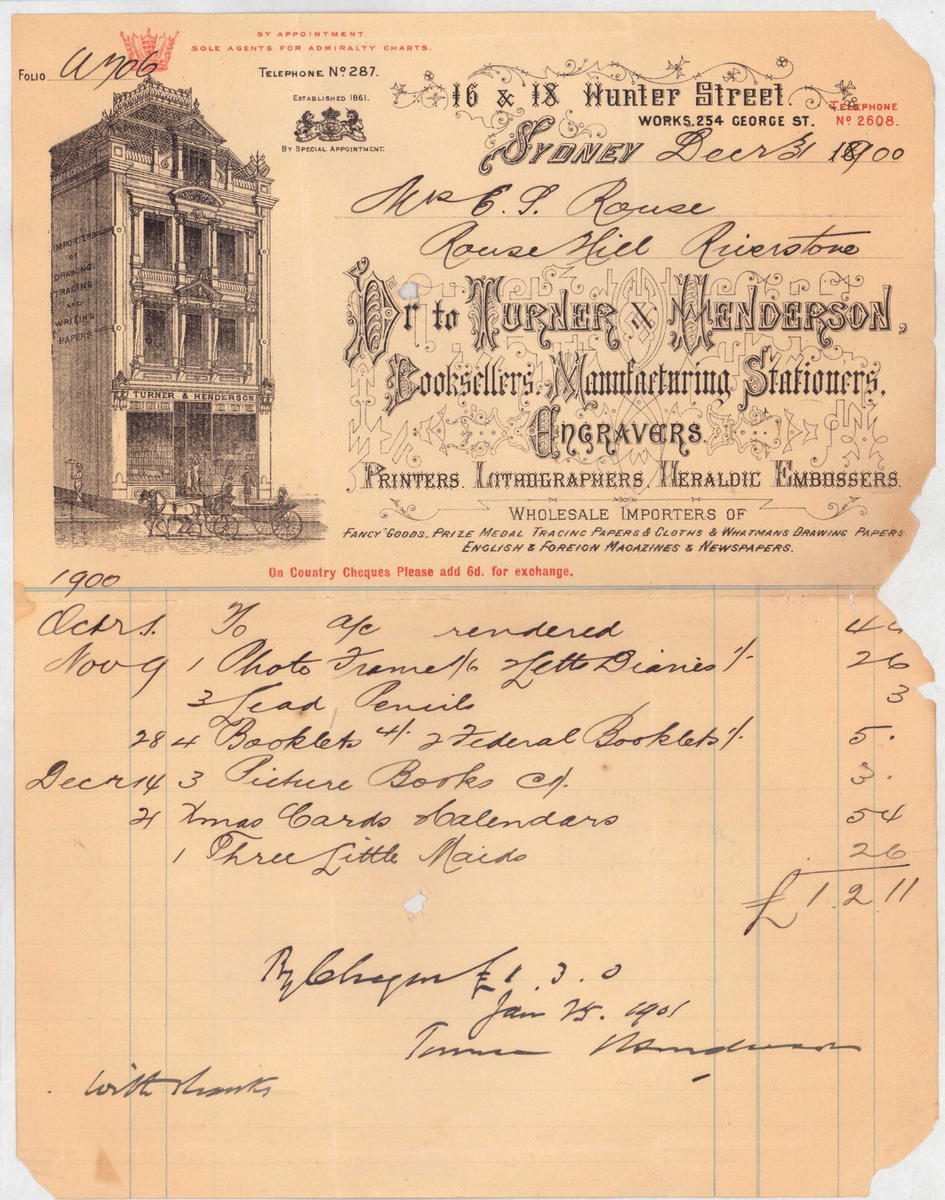 BY APPOINTMENT
SOLE AGENTS FOR ADMIRALTY CHARTS.
FOLIO A706
TELEPHONE Nº 287.
ESTABLISHED 1861.
BY SPECIAL APPOINTMENT.
16 & 18 Hunter Street.
WORKS. 254 GEORGE ST.
TELEPHONE
Nº 2608.
SYDNEY Decr 31 1900
Mrs E. S. Rouse
Rouse Hill Riverstone
IMPORTERS
OF
DRAWING,
TRACING
AND
WRITING
PAPERS
TURNER & HENDERSON
Dr to TURNER & HENDERSON,
Booksellers. Manufacturing Stationers.
ENGRAVERS.
PRINTERS. LITHOGRAPHERS. HERALDIC EMBOSSERS.
WHOLESALE IMPORTERS OF
FANCY GOODS. PRIZE MEDAL TRACING PAPERS & CLOTHS & WHATMANS DRAWING PAPERS
ENGLISH & FOREIGN MAGAZINES & NEWSPAPERS.
On Country Cheques Please add 6d. for exchange.
1900
Octr 1. To a/c rendered 4
Nov 9 1 Photo Frame 1/6 2 Letts Diaries 1/- 2 6
3 Lead Pencils 3
28 4 Booklets 4/- 2 Federal Booklets 1/- 5 .
Decr 14 3 Picture Books 3 .
21 Xmas Cards & Calendars 5 4
1 Three Little Maids 2 6
£1. 2 11
By Cheque £1. 3. 0
Jan 25. 1901
Turner Henderson
With thanks